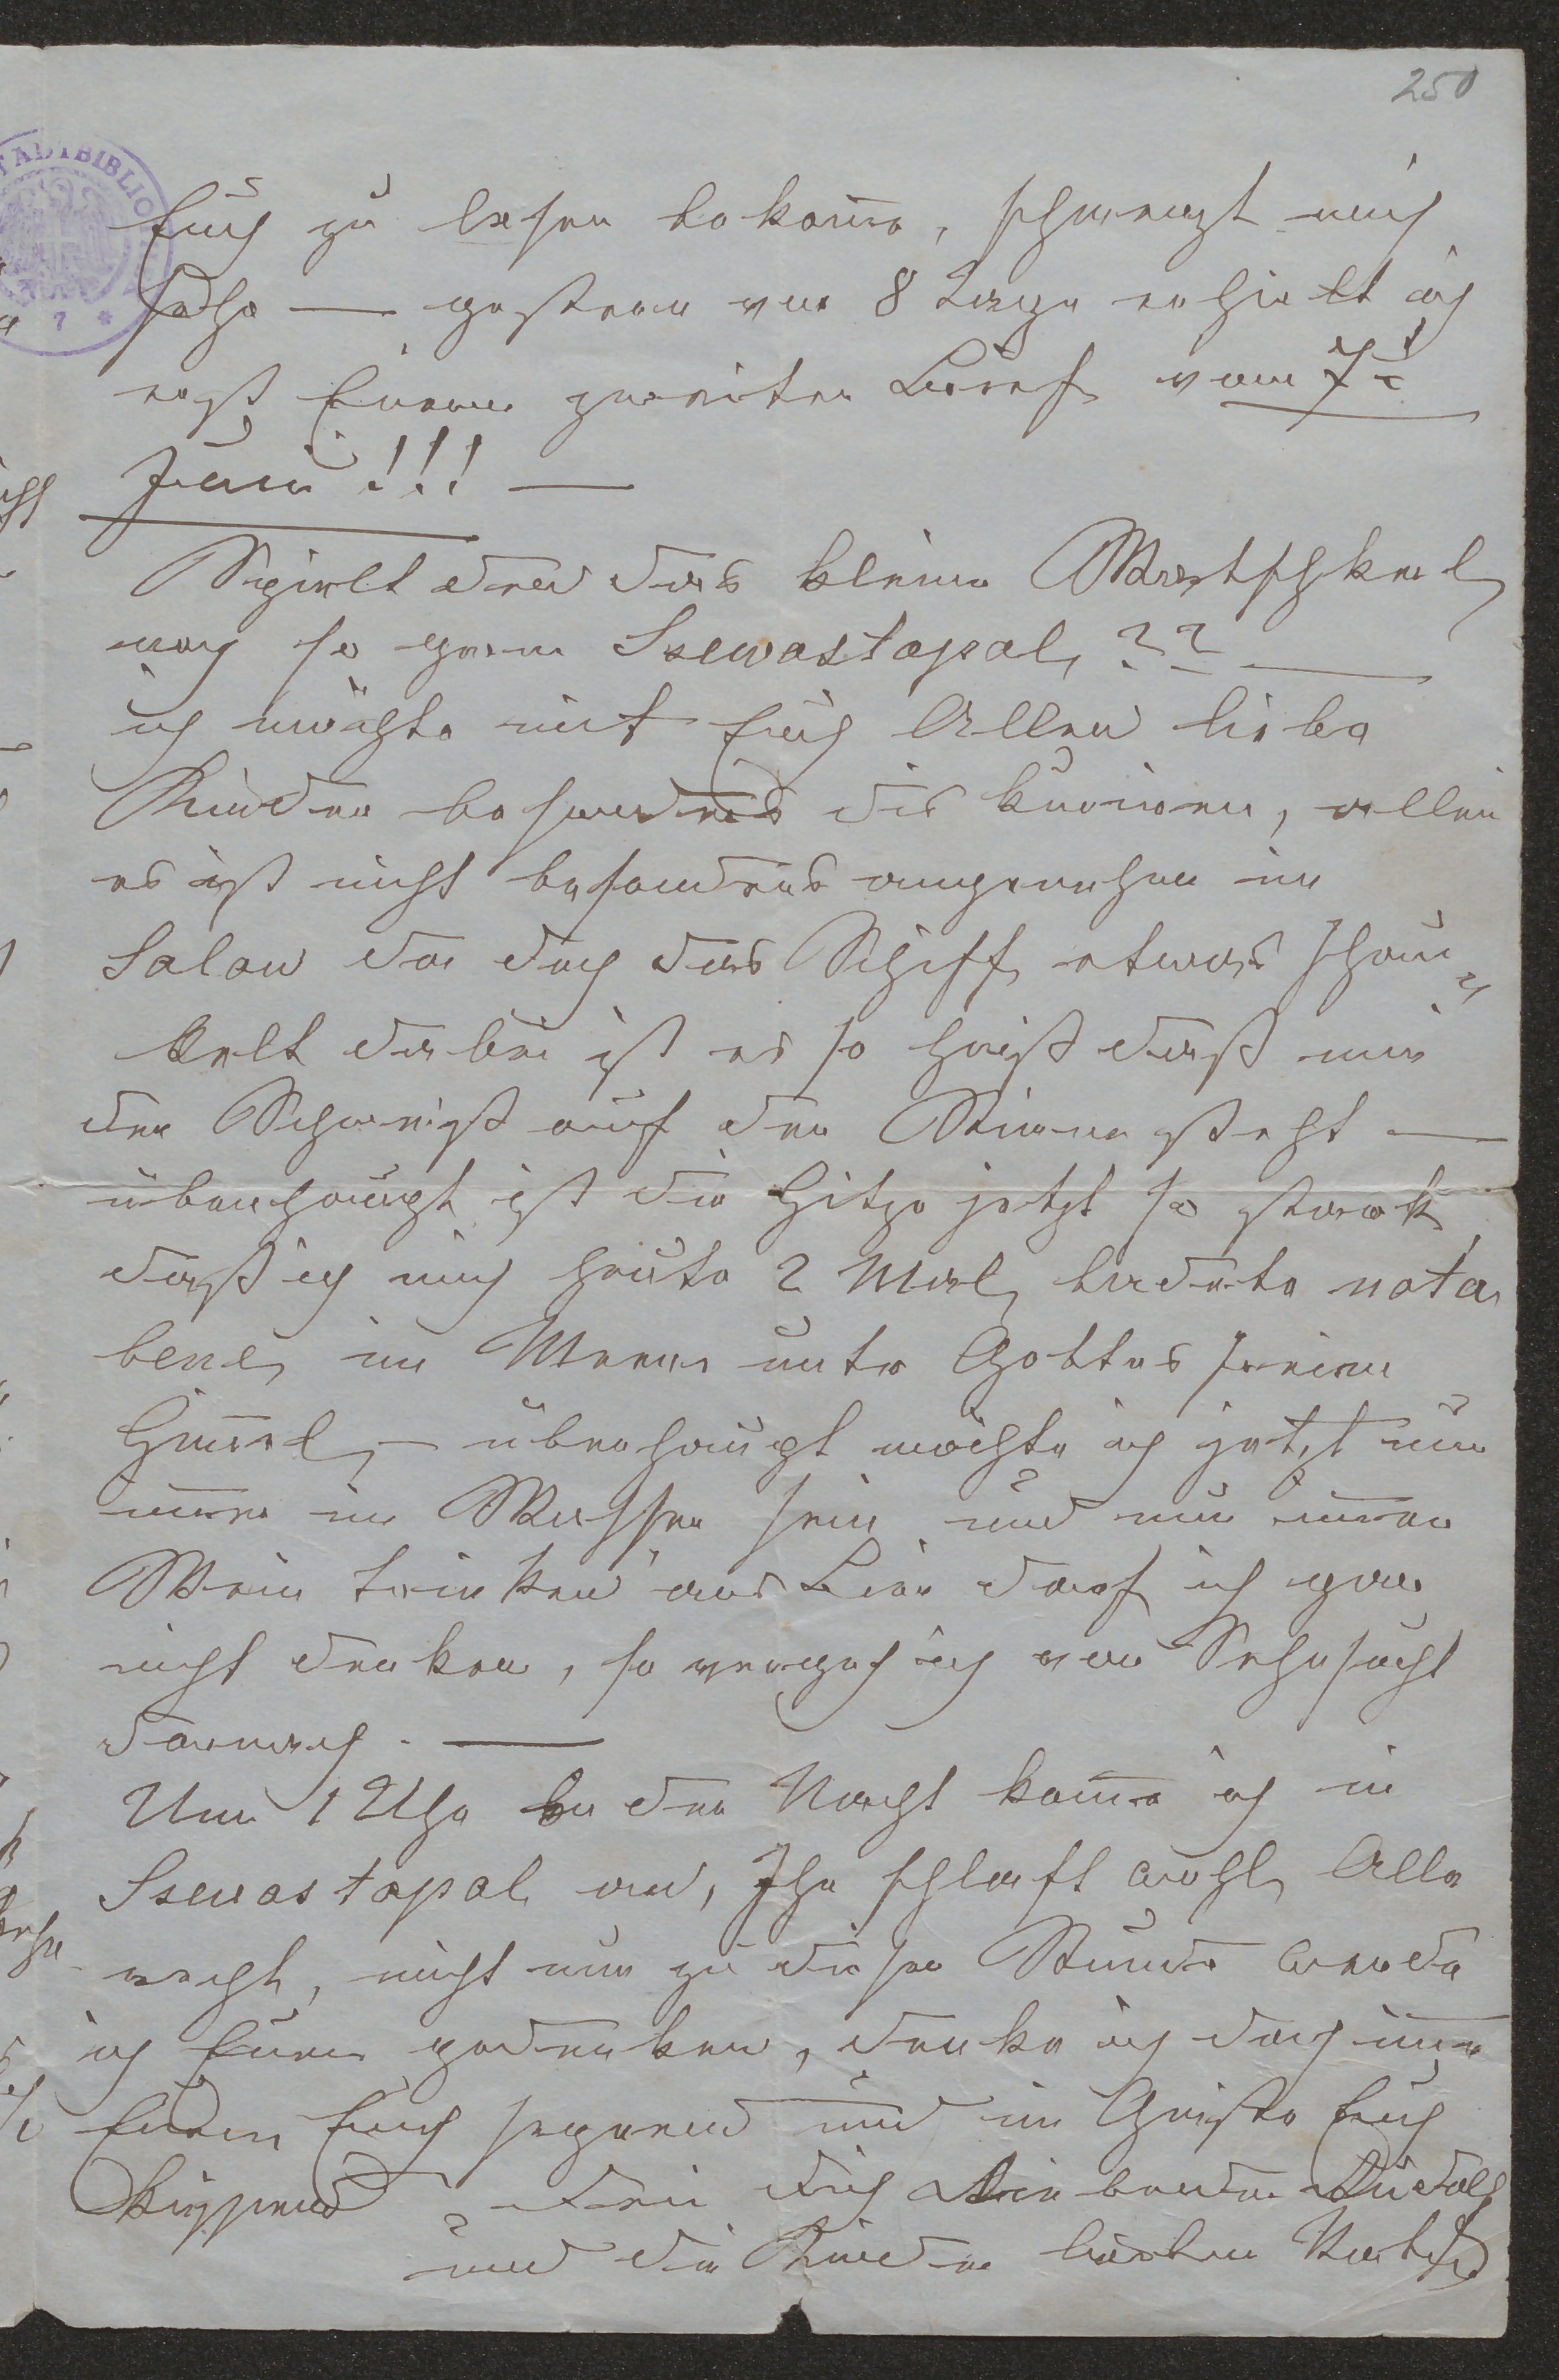 250
Euch zu lesen bekom̄e, schmerzt mich
sehr — gestern vor 8 Tage erhielt ich
erst Euern zweiten Brief vom 7t
Juni!!! —
Spielt den das kleine
noch so gern Ssewastopol?? —
ich möchte mit Euch Allen liebe
Kinder besonders dis kutiren, allein
es ist nicht besonders angenehm im
Salon da doch das Schiff etwas schau
kelt dabei ist es so heiß daß mir
der Schweiß auf der Stirne steht —
überhaupt ist die Hitze jetzt so stark
daß ich mich heute 2 Mal badete nota
bene im Meere unter Gottes freien
Him̄el — überhaupt möchte ich jetzt nur
im̄er im Wasser sein und nur im̄er
Wein trinken ans Bier darf ich gar
nicht denken, so vergeh ich von Sehnsucht
darnach. —
Um 1 Uhr in der Nacht kom̄e ich in
Ssewastopol an, Ihr schlaft wohl Alle
recht, nicht nur zu dieser Stunde werde
ich Eurer gedenken, denke ich doch im̄er
Eurer Euch segnend und im Geiste Euch
küssend Dein Dich liebender Rudolf
und die Kinder liebender
STADTBIBLIO
7